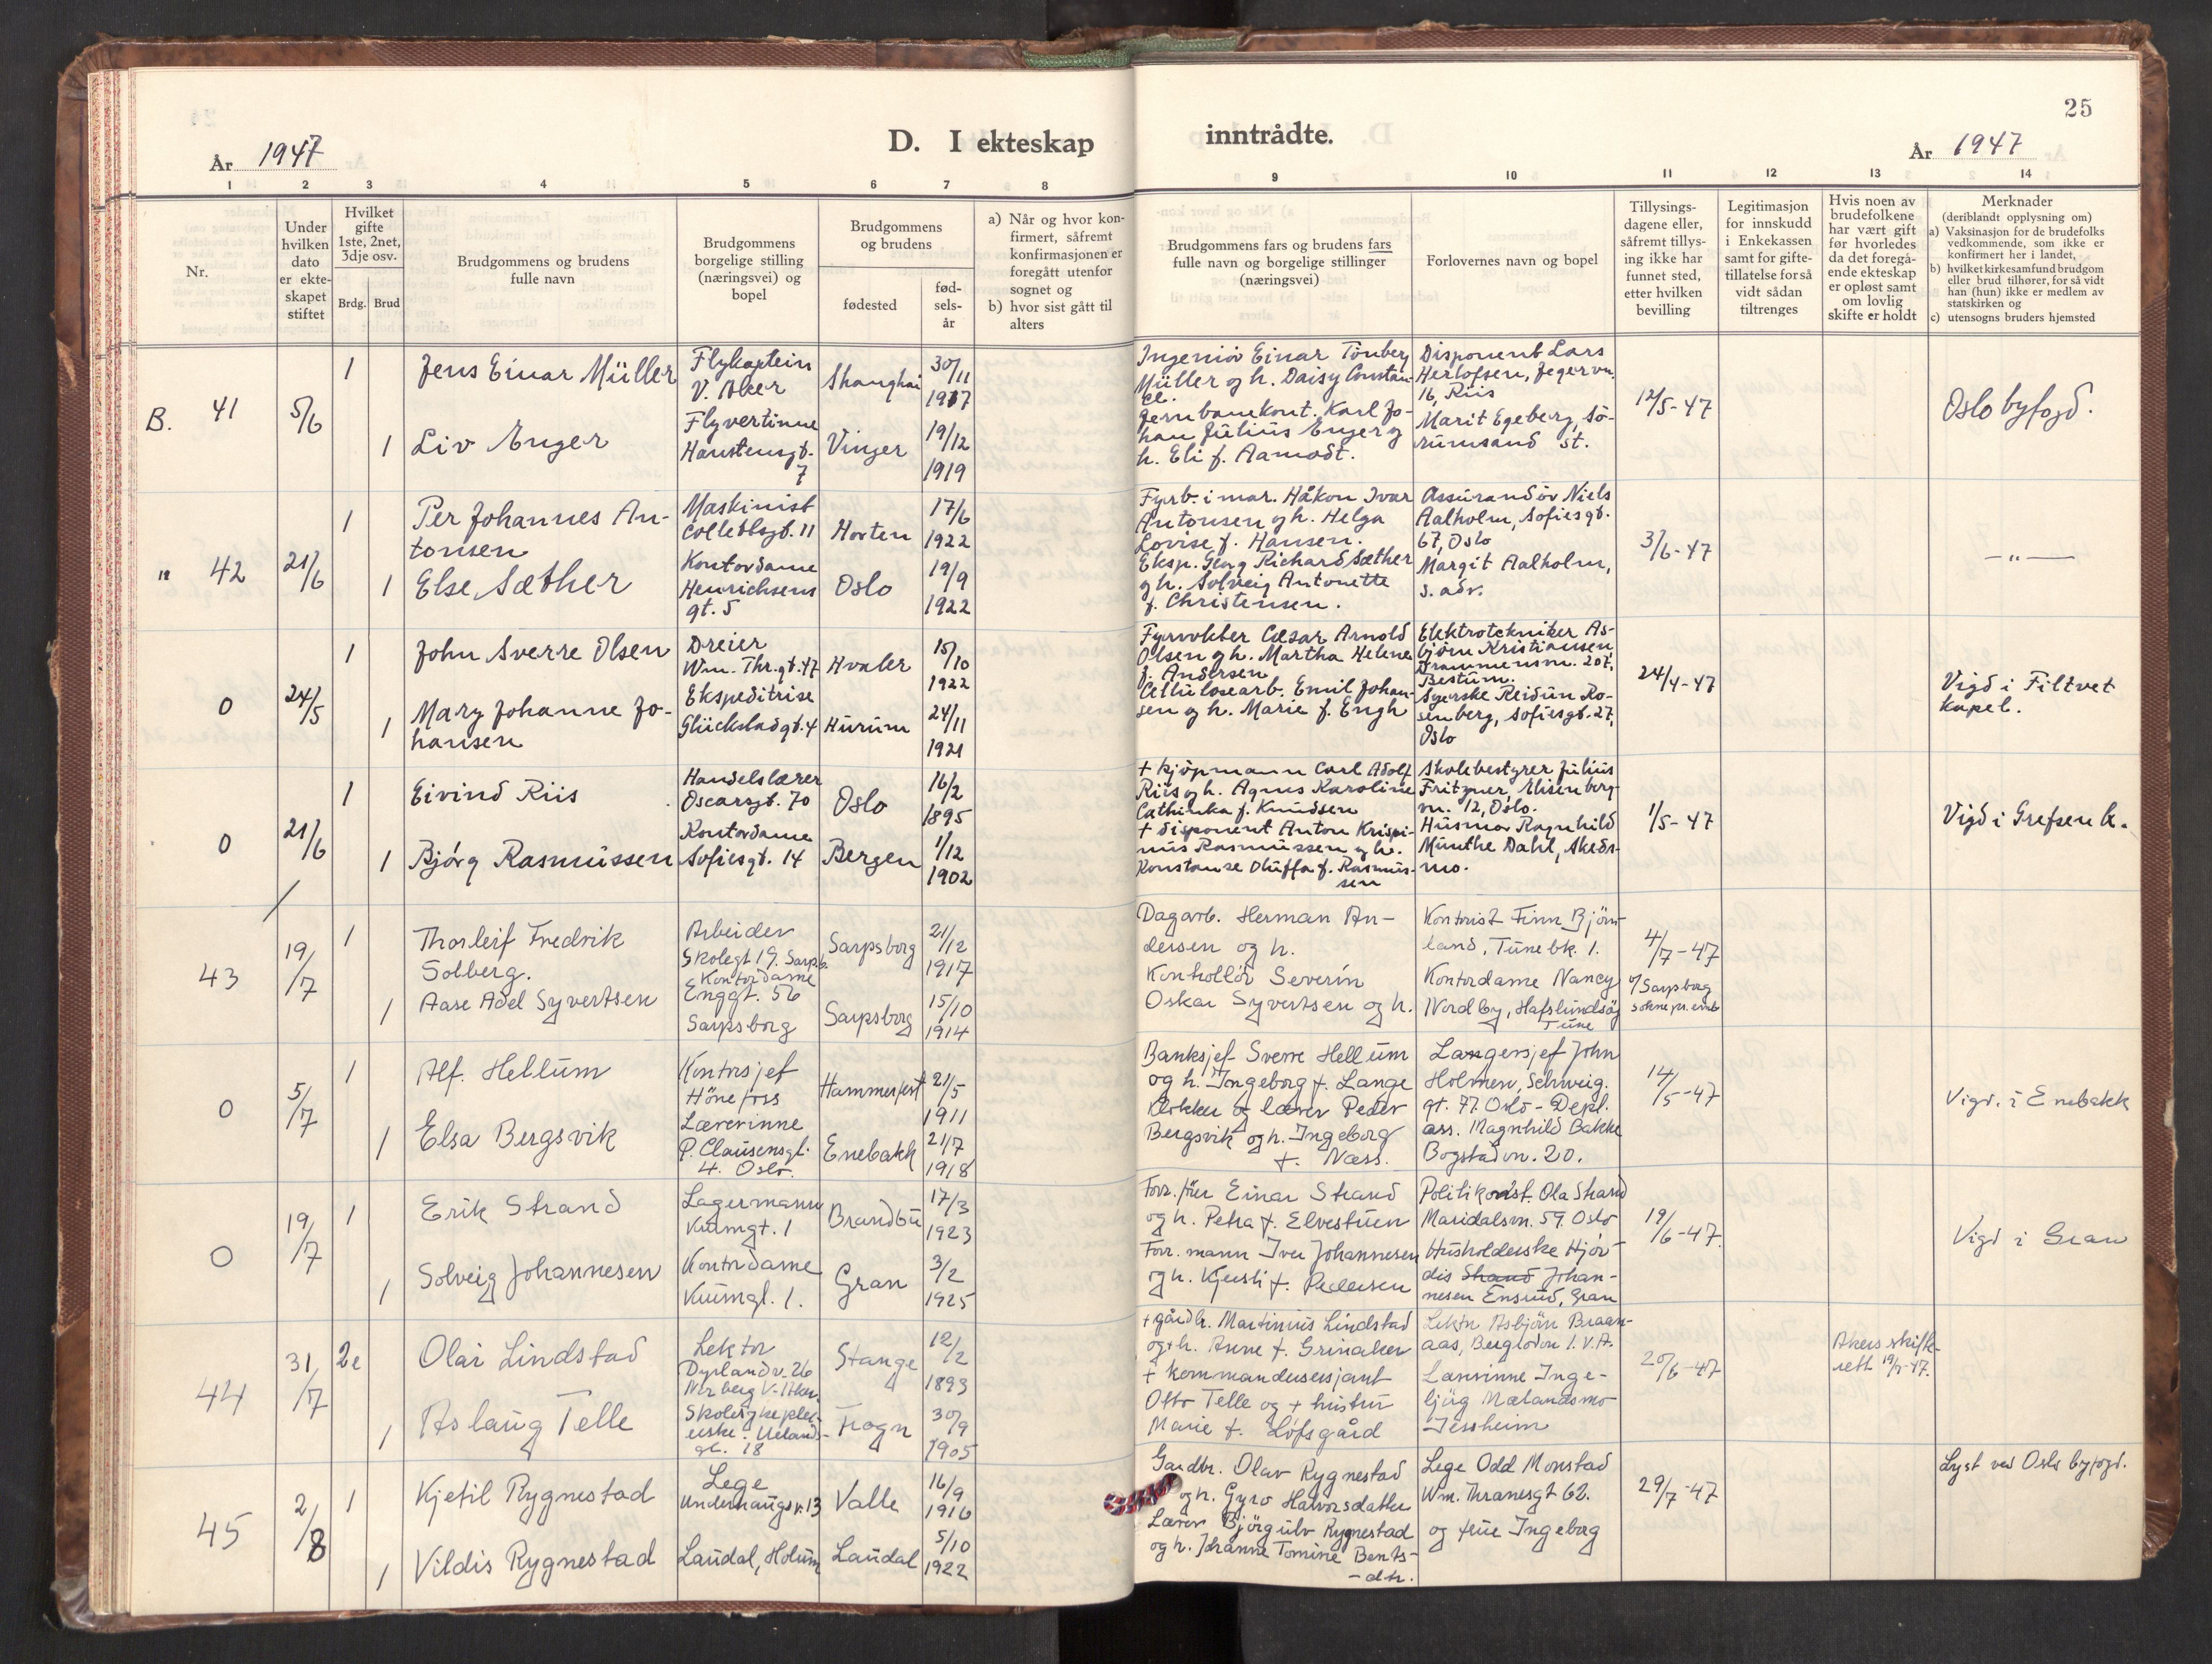 25
År 1947
D. I ekteskap inntrådte.
År 1947
1 2 3 4 5 6 7 8 9 10 11 12 13 14
Nr.
Under hvilken dato er ekte-skapet stiftet
Hvilket gifte 1ste, 2net, 3dje osv.
Brdg. Brud
Brudgommens og brudens fulle navn
Brudgommens borgelige stilling (næringsvei) og bopel
Brudgommens og brudens
fødested
fød-sels-år
a) Når og hvor kon-firmert, såfremt konfirmasjonen er foregått utenfor sognet og
b) hvor sist gått til alters
Brudgommens fars og brudens fars fulle navn og borgelige stillinger (næringsvei)
Forlovernes navn og bopel
Tillysings-dagene eller, såfremt tillys-ing ikke har funnet sted, etter hvilken bevilling
Legitimasjon for innskudd i Enkekassen samt for gifte-tillatelse for så vidt sådan tiltrenges
Hvis noen av brudefolkene har vært gift før hvorledes da det foregå-ende ekteskap er opløst samt om lovlig skifte er holdt
Merknader
(deriblandt opplysning om)
a) Vaksinasjon for de brudefolks vedkommende, som ikke er konfirmert her i landet,
b) hvilket kirkesamfund brudgom eller brud tilhører, for så vidt han (hun) ikke er medlem av statskirken og
c) utensogns bruders hjemsted
B. 41
5/6
1
Jens Einar Müller
Flykaptein
V. Aker
Shanghai
30/11
1917
1
Liv Enger
Flyvertinne
Hanstensgt.
7
Vinger
19/12
1919
Ingeniör Einar Tönberg
Müller og h. Daisy Constan-
ce.
Jernbanekont. Karl Jo-
han Julius Enger og
h. Eli f. Aamodt.
Disponent Lars
Herlofsen, Jegervn.
16, Riis
Marit Egeberg, Sö-
rumsand st.
12/5-47
Oslo byfogd.
" 42
21/6
1
Per Johannes An-
tonsen
Maskinist
Collettsgt. 11
Horten
17/6
1922
1
Else Sæther
Kontordame
Henrichsens
gt. 5
Oslo
19/9
1922
Fyrb. i mar. Håkon Ivar
Antonsen og h. Helga
Lovise f. Hansen.
Eksp. Georg Richard Sæther
og h. Solveig Antonette
f. Christensen.
Assurandör Niels
Aalholm, Sofiesgt.
67, Oslo
Margit Aalholm,
s. adr.
3/6-47
—"—
0
24/5
1
John Sverre Olsen
Dreier
Wm. Thr.gt. 47
Hvaler
15/10
1922
1
Mary Johanne Jo-
hansen
Ekspeditrise
Glückstadgt. 4
Hurum
24/11
1921
Fyrvokter Cæsar Arnold
Olsen og h. Martha Helene
f. Andersen
Cellulosearb. Emil Johan-
sen og h. Marie f. Engh
Elektrotekniker As-
björn Kristiansen,
Drammensvn. 207,
Bestum.
Syerske Reidun Ro-
senberg, Sofiesgt. 27,
Oslo
24/4-47
Vigd i Filtvet
kapel.
0
21/6
1
Eivind Riis
Handelslærer
Oscarsgt. 70
Oslo
16/2
1895
1
Bjórg Rasmussen
Kontordame
Sofiesgt. 14
Bergen
1/12
1902
+ kjöpmann Carl Adolf
Riis og h. Agnes Karoline
Cathinka f. Knudsen
+ disponent Anton Krispi-
nus Rasmussen og h.
Konstanse Oluffa f. Rasmus-
sen
Skolebestyrer Julius
Fritzner, Elisenberg-
vn. 12, Oslo.
Husmor Ragnhild
Munthe Dahl, Akeds-
mo.
1/5-47
Vigd i Grefsen k.
43
19/7
1
Thorleif Fredrik
Solberg.
Arbeider
Skolegt 19. Sarpsb.
Sarpsborg
21/12
1917
1
Aase Adel Syvertsen
Kontordame
Enggt. 56
Sarpsborg
Sarpsborg
15/10
1914
Dagarb. Herman An-
dersen og h.
Kontrollör Severin
Oskar Syvertsen og h.
Kontorist Finn Björn-
land, Tune bk. 1.
Kontordame Nancy
Nordby, Hafslundsöy
Tune
4/7-47
v/ Sarpsborg
sokneprestemb
0
5/7
1
Alf. Hellum
Kontorsjef
Hönefoss
Hammerfest
21/5
1911
1
Elsa Bergsvik
Lærerinne
P. Clausensgt.
4. Oslo.
Enebakk
21/7
1918
Banksjef Sverre Hellum
og h. Ingeborg f. Lange
Klokker og lærer Peder
Bergsvik og h. Ingeborg
f. Næss.
Langersjef John
Holmen, Schweig.
gt. 77. Oslo - Depl.
ass. Magnhild Bakke
Bogstadvn. 20.
14/5-47
Vigd. i Enebakk
0
19/7
1
Erik Strand
Lagermann
Kuringt. 1
Brandbu
17/3
1923
1
Solveig Johannesen
Kontordame
Kuringt. 1.
Gran
3/2
1925
Forr. Einar Strand
og h. Petra f. Elvestuen
Forr. mann Iver Johannesen
og h. Kjersti f. Pedersen
Politikonst. Ola Strand
Maridalsvn. 59. Oslo
Husholderske Hjör-
dis Strand Johan-
nesen Ensrud, Gran
19/6-47.
Vigd i Gran
44
31/7
2e
Olai Lindstad
Lektor
Dyrlandv. 26
Nordberg V. Aker
Stange
12/2
1893
1
Aslaug Telle
Skolesykeplei-
erske. Ueland-
gt. 18
Frogn
30/9
1905
+ gårdbr. Martinius Lindstad
og + h. Anne f. Grinaker
+ kommandersersjant
Otto Telle og + hustru
Marie f. Löfsgård
Lektor Asbjörn Braan-
aas, Berglivn 1. V.A.
Lærerinne Inge-
björg Mælandsmo
Jessheim
20/6-47
Akers skifte-
rett 19/7-47.
45
2/8
1
Kjetil Rygnestad
Lege
Underhaugsv. 13
Valle
16/9
1916
1
Vildis Rygnestad
Laudal, Holum
Laudal
5/10
1922
Gardbr. Olav Rygnestad
og h. Gyro Halvorsdatter
Lærer Björgulv Rygnestad
og h. Johanne Tomine Bents-
-dtr.
Lege Odd Monstad
Wm. Thranesgt 62.
og frue Ingeborg
29/7-47
Lyst ved Oslo byfogd.